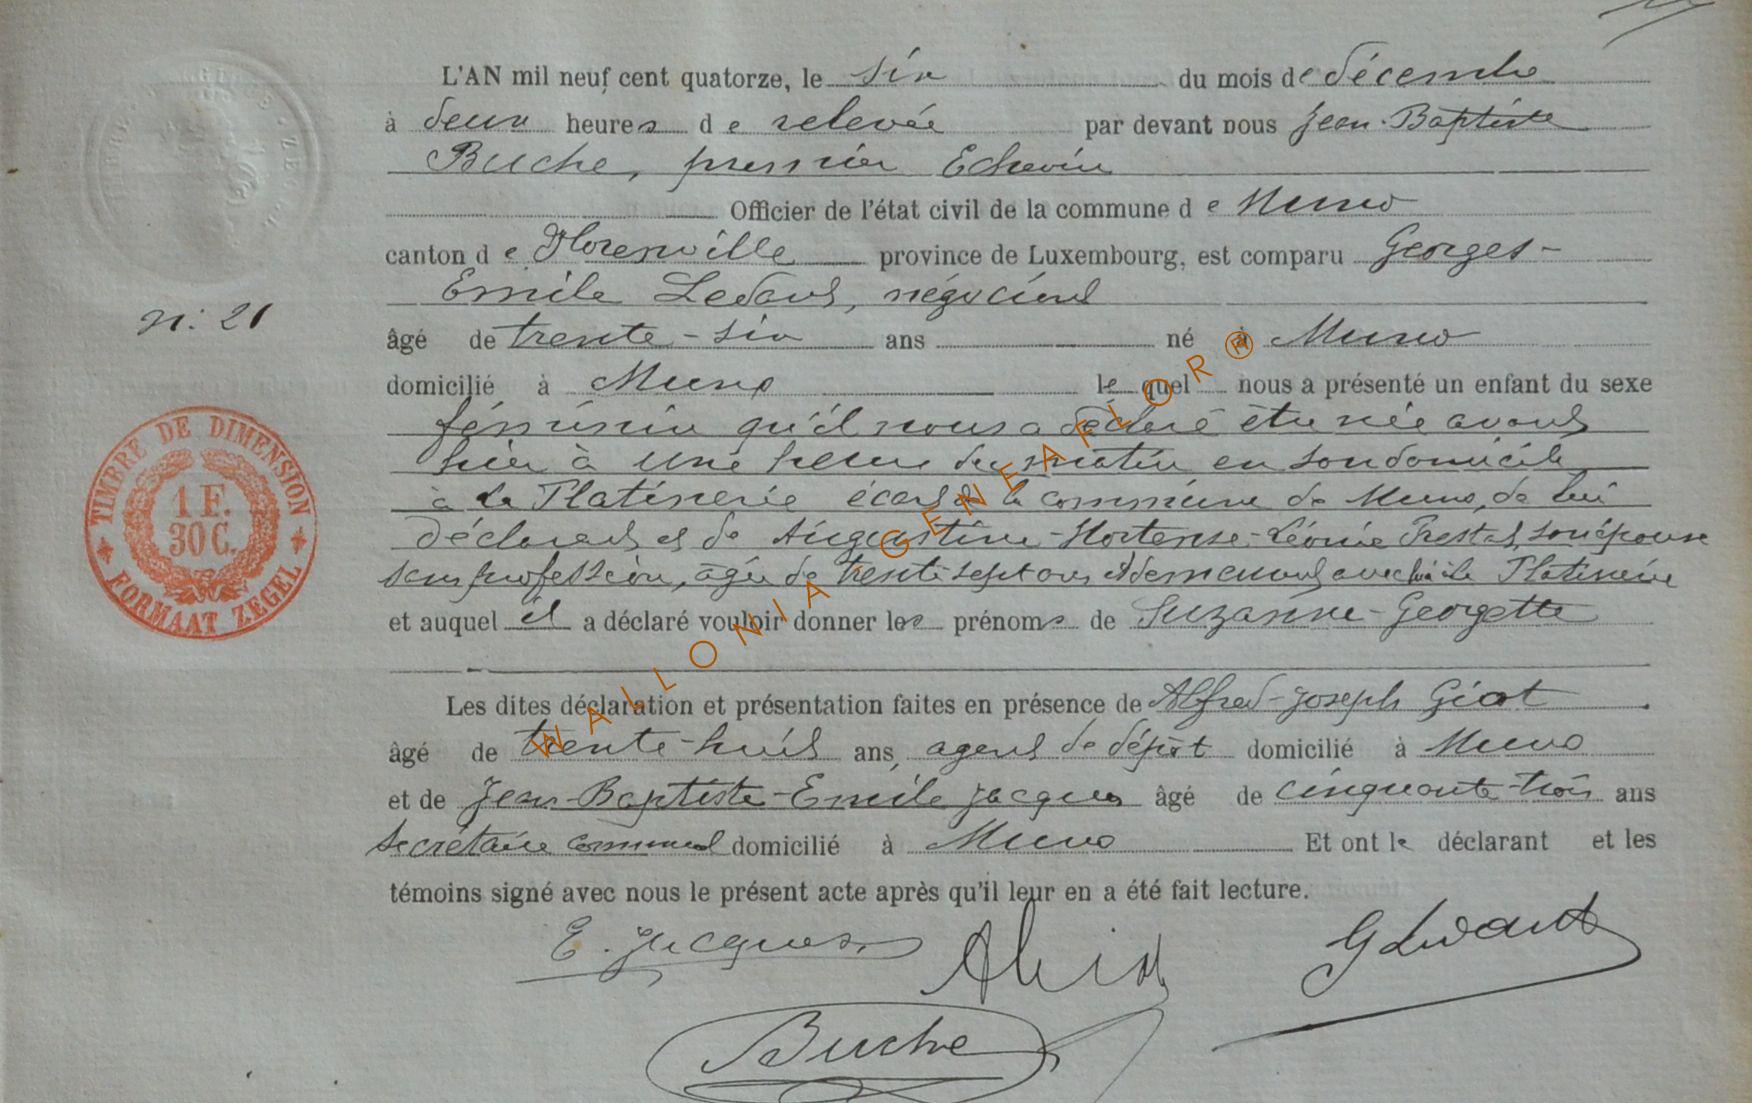 L'AN mil neuf cent quatorze, le six du mois de décembre
à deux heures de relevée par devant nous Jean-Baptiste
Buche, premier Echevin
Officier de l'état civil de la commune de Muno
canton de Florenville province de Luxembourg, est comparu Georges-
Emile négociant
n: 21
âgé de trente-six ans né à Muno
domicilié à Muno lequel nous a présenté un enfant du sexe
féminin qu'il nous a déclaré être née avant
hier à une heure du matin en son domicile
à la Platinerie écart de la commune de Muno, de lui
déclarant et de Augustine-Hortense-Léonie son épouse
sans profession, âgée de trente sept ans et demeurant avec lui à la Platinerie
et auquel il a déclaré vouloir donner les prénoms de Suzanne-Georgette
Les dites déclaration et présentation faites en présence de Alfred-Joseph Giot
âgé de trente-huit ans, agent de dépôt domicilié à Muno
et de Jean-Baptiste-Emile Jacques âgé de cinquante-trois ans
secrétaire communal domicilié à Muno Et ont le déclarant et les
témoins signé avec nous le présent acte après qu'il leur en a été fait lecture.
E. Jacques
Buche
TIMBRE DE DIMENSION
1 F.
30 C.
FORMAAT ZEGEL
WALLONIA - GENEAFLOR ®